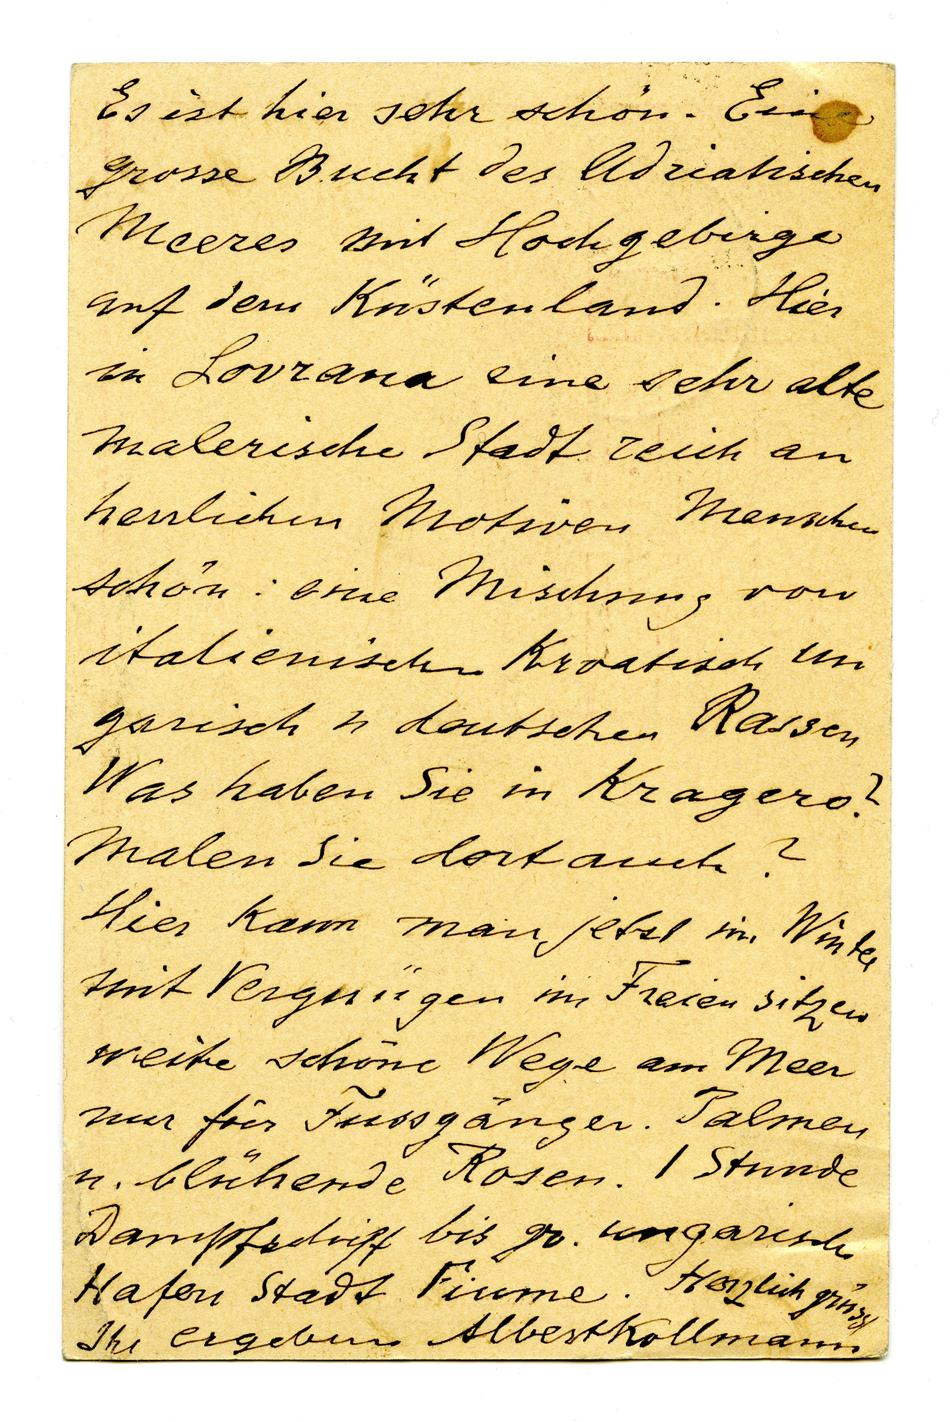 Es ist hier sehr schön. Eine
grosse Bucht des Adriatischen
Meeres mit Hochgebirge
auf dem Küstenland. Hier
in Lovrana eine sehr alte
malerische Stadt reich an
herrlichen Motiven Menschen
schön: eine Mischung von
italienischen Kroatisch un
garisch u deutschen Rassen
Was haben Sie in Kragero?
Malen Sie dort auch?
Hier kann man jetzt im Winter
mit Vergnügen im Freien sitzen
weite schöne Wege am Meer
nur für Fussgänger. Palmen
u. blühende Rosen. 1 Stunde
Dampfschiff bis gr. ungarisch
Hafen Stadt Fiume. Herzlich grüsst
Ihr ergeben Albert Kollmann